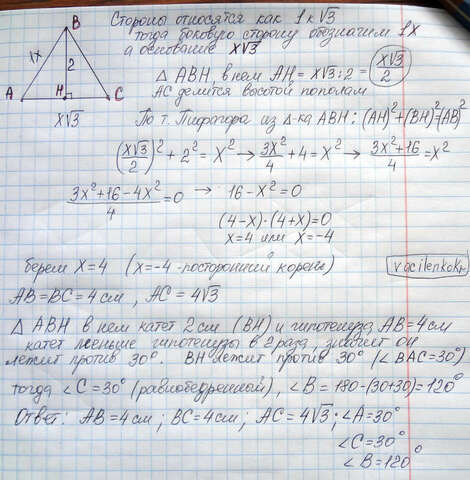 Стороны относятся как 1 к √3
тогда боковую сторону обозначим 1x
а основание x√3
B
1x
2
A H C
x√3
△ ABH, в нем AH = x√3 : 2 = x√3/2
AC делится высотой пополам
По т. Пифагора из △-ка ABH: (AH)²+(BH)²=(AB)²
(x√3/2)² + 2² = x² → 3x²/4 + 4 = x² → 3x²+16/4 = x²
3x²+16-4x²/4 = 0 → 16-x² = 0
(4-x)·(4+x)=0
x=4 или x=-4
берем x=4 (x=-4 - посторонний корень)
vacilenkokr
AB=BC=4 см, AC = 4√3
△ ABH в нем катет 2 см (BH) и гипотенуза AB=4 см
катет меньше гипотенузы в 2 раза, значит он
лежит против 30°. BH лежит против 30° (∠BAC=30°)
тогда ∠C=30° (равнобедренный), ∠B = 180-(30+30)=120°
Ответ: AB=4 см; BC=4 см; AC = 4√3; ∠A=30°
∠C=30°
∠B=120°